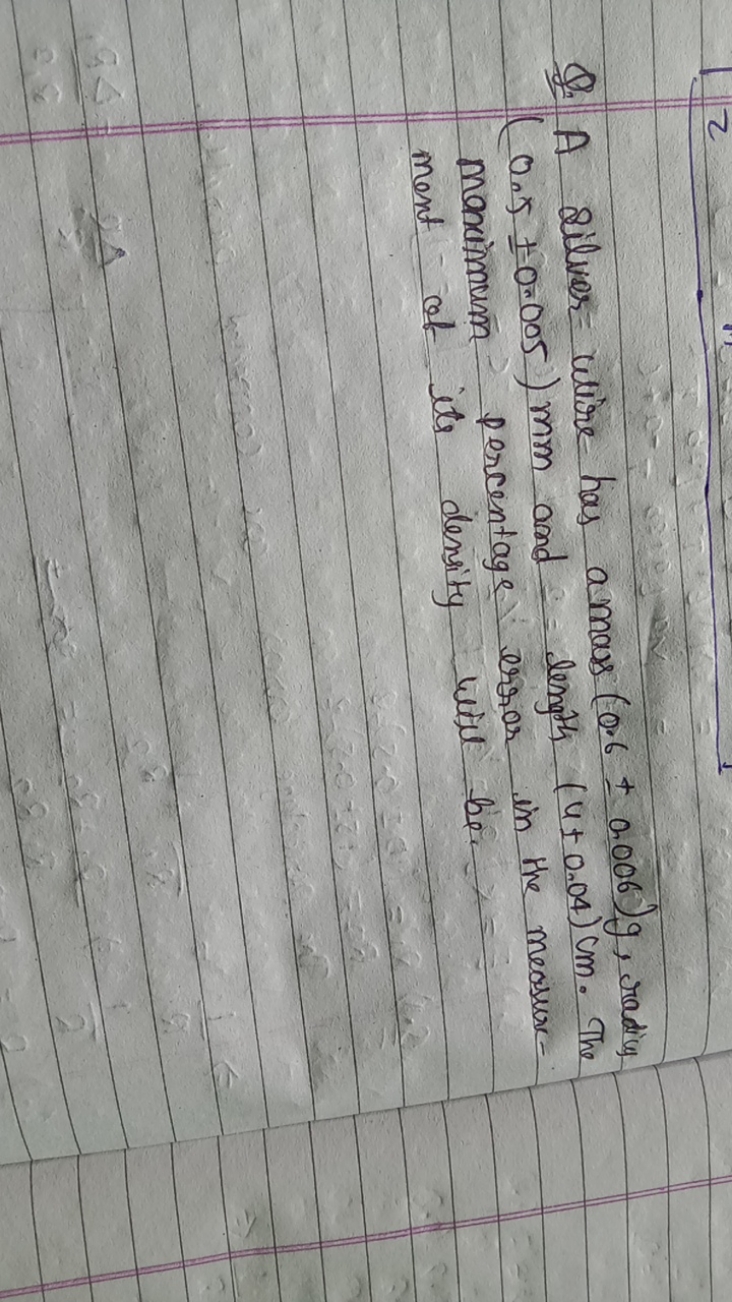 Q. A silver wire has a mass (0.6 ± 0.006)g, radius
(0.5 ± 0.005)mm and length (4 ± 0.04)cm. The
maximum percentage error in the measure-
ment of its density will be.
2